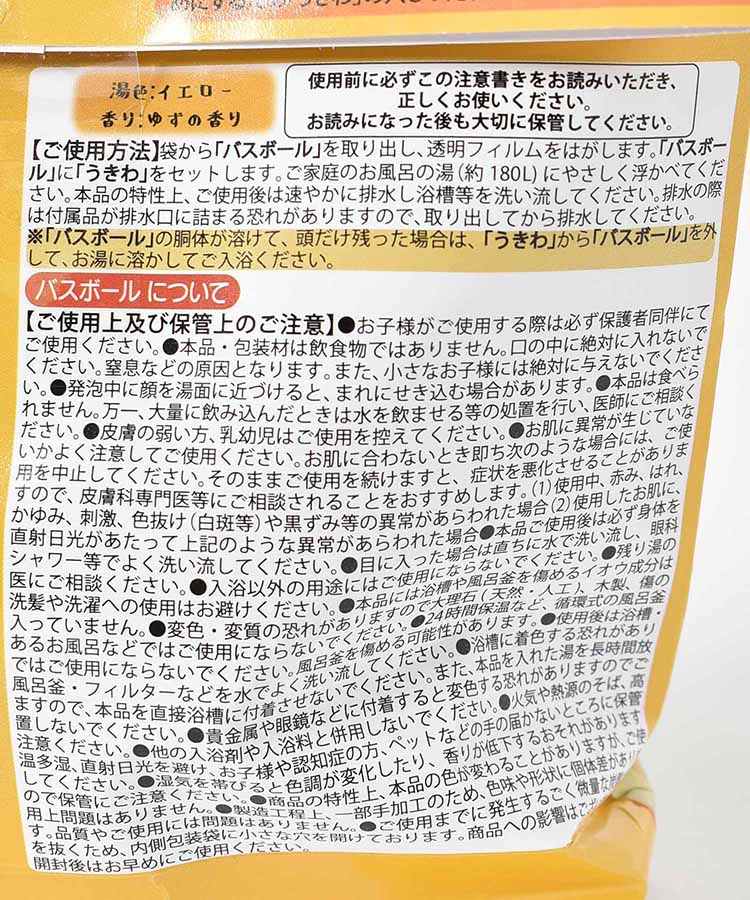 湯色:イエロー
香り:ゆずの香り
使用前に必ずこの注意書きをお読みいただき、
正しくお使いください。
お読みになった後も大切に保管してください。
【ご使用方法】袋から「バスボール」を取り出し、透明フィルムをはがします。「バスボー
ル」に「うきわ」をセットします。ご家庭のお風呂の湯(約180L)にやさしく浮かべてくだ
さい。本品の特性上、ご使用後は速やかに排水し浴槽等を洗い流してください。排水の際
は付属品が排水口に詰まる恐れがありますので、取り出してから排水してください。
※「バスボール」の胴体が溶けて、頭だけ残った場合は、「うきわ」から「バスボール」を外
して、お湯に溶かしてご入浴ください。
バスボールについて
【ご使用上及び保管上のご注意】●お子様がご使用する際は必ず保護者同伴にて
ご使用ください。●本品・包装材は飲食物ではありません。口の中に絶対に入れないで
ください。窒息などの原因となります。また、小さなお子様には絶対に与えないでくださ
い。●発泡中に顔を湯面に近づけると、まれにせき込む場合があります。●本品は食べら
れません。万一、大量に飲み込んだときは水を飲ませる等の処置を行い、医師にご相談く
ださい。●皮膚の弱い方、乳幼児はご使用を控えてください。●お肌に異常が生じていな
いかよく注意してご使用ください。お肌に合わないとき即ち次のような場合には、ご使
用を中止してください。そのままご使用を続けますと、症状を悪化させることがありま
すので、皮膚科専門医等にご相談されることをおすすめします。(1)使用中、赤み、はれ、
かゆみ、刺激、色抜け(白斑等)や黒ずみ等の異常があらわれた場合(2)使用したお肌に、
直射日光があたって上記のような異常があらわれた場合●本品ご使用後は必ず身体を
シャワー等でよく洗い流してください。●目に入った場合は直ちに水で洗い流し、眼科
医にご相談ください。●入浴以外の用途にはご使用にならないでください。●残り湯の
洗髪や洗濯への使用はお避けください。●本品には浴槽や風呂釜を傷めるイオウ成分は
入っていません。●変色・変質の恐れがありますので大理石(天然・人工)、木製、傷の
あるお風呂などではご使用にならないでください。●24時間保温など、循環式の風呂釜
ではご使用にならないでください。風呂釜を傷める可能性があります。●使用後は浴槽・
風呂釜・フィルターなどを水でよく洗い流してください。●浴槽に着色する恐れがあり
ますので、本品を直接浴槽に付着させないでください。また、本品を入れた湯を長時間放
置しないでください。●貴金属や眼鏡などに付着すると変色する恐れがありますのでご
注意ください。●他の入浴剤や入浴料と併用しないでください。●火気や熱源のそば、高
温多湿、直射日光を避け、お子様や認知症の方、ペットなどの手の届かないところに保管
してください。●湿気を帯びると色調が変化したり、香りが低下するおそれがあります
ので保管にご注意ください。●商品の特性上、本品の色が変わることがありますが、ご使
用上問題はありません。●製造工程上、一部手加工のため、色味や形状に個体差があり
す。品質やご使用には問題はありません。●ご使用までに発生するごく微量な
を抜くため、内側包装袋に小さな穴を開けております。商品への影響はござ
開封後はお早めにご使用ください。